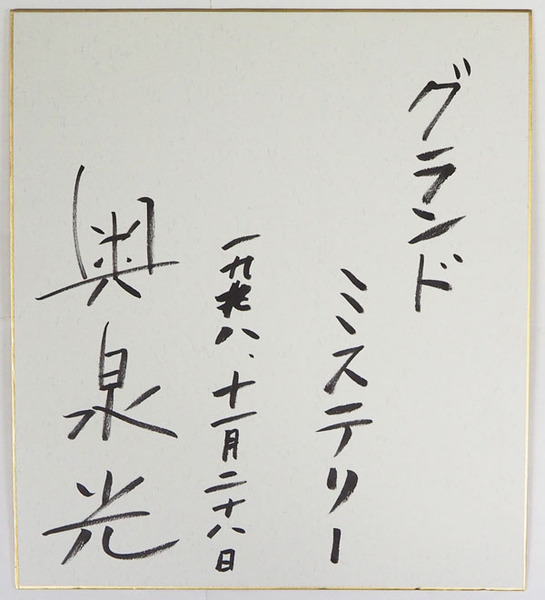 グランド
ミステリー
一九九八、十一月二十八日
奥泉光